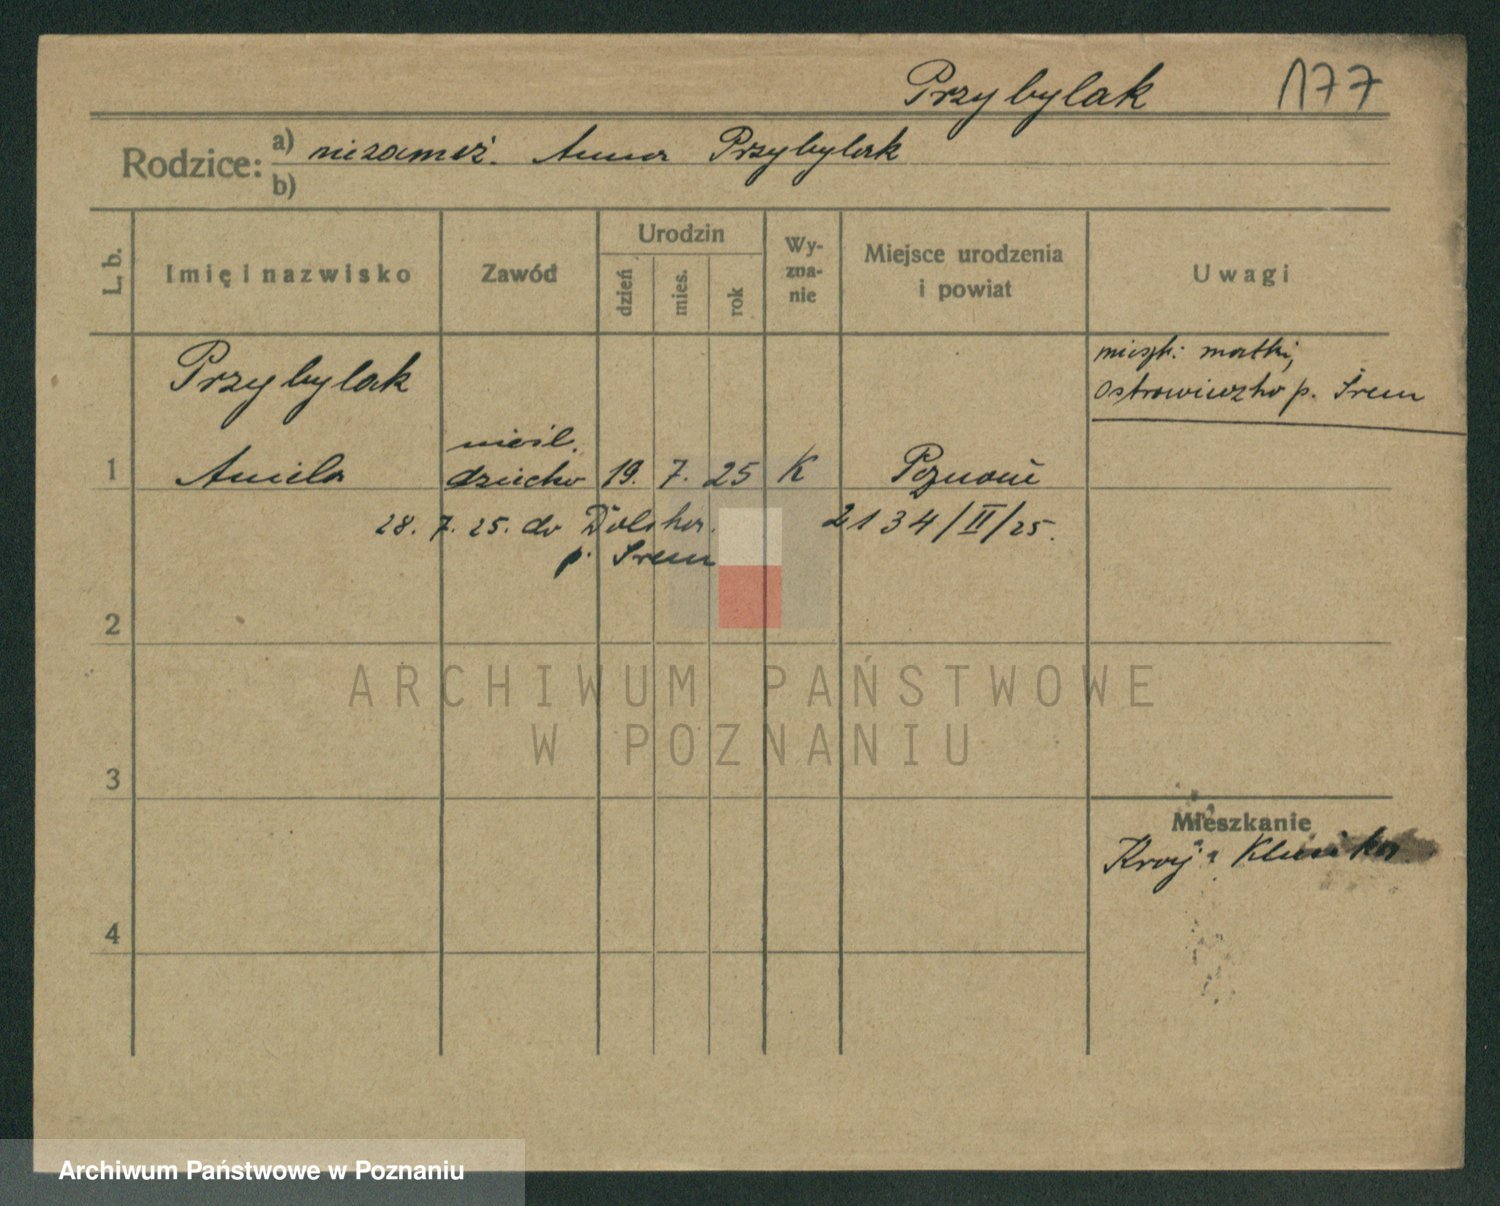 Przybylak 177
Rodzice: a) niezamęż. Anna Przybylak
b)
L. b.
Imię i nazwisko
Zawód
Urodzin
dzień
mies.
rok
Wy-
zna-
nie
Miejsce urodzenia
i powiat
Uwagi
mieszk. matki,
Ostrowieczko p. Śrem
Przybylak
nieśl.
1 Aniela dziecko 19. 7. 25 K Poznań
28. 7. 25. do Dolska. 2134/II/25.
p. Śrem
2
3
4
Mieszkanie
Kraj. Klinika
ARCHIWUM PAŃSTWOWE
W POZNANIU
Archiwum Państwowe w Poznaniu